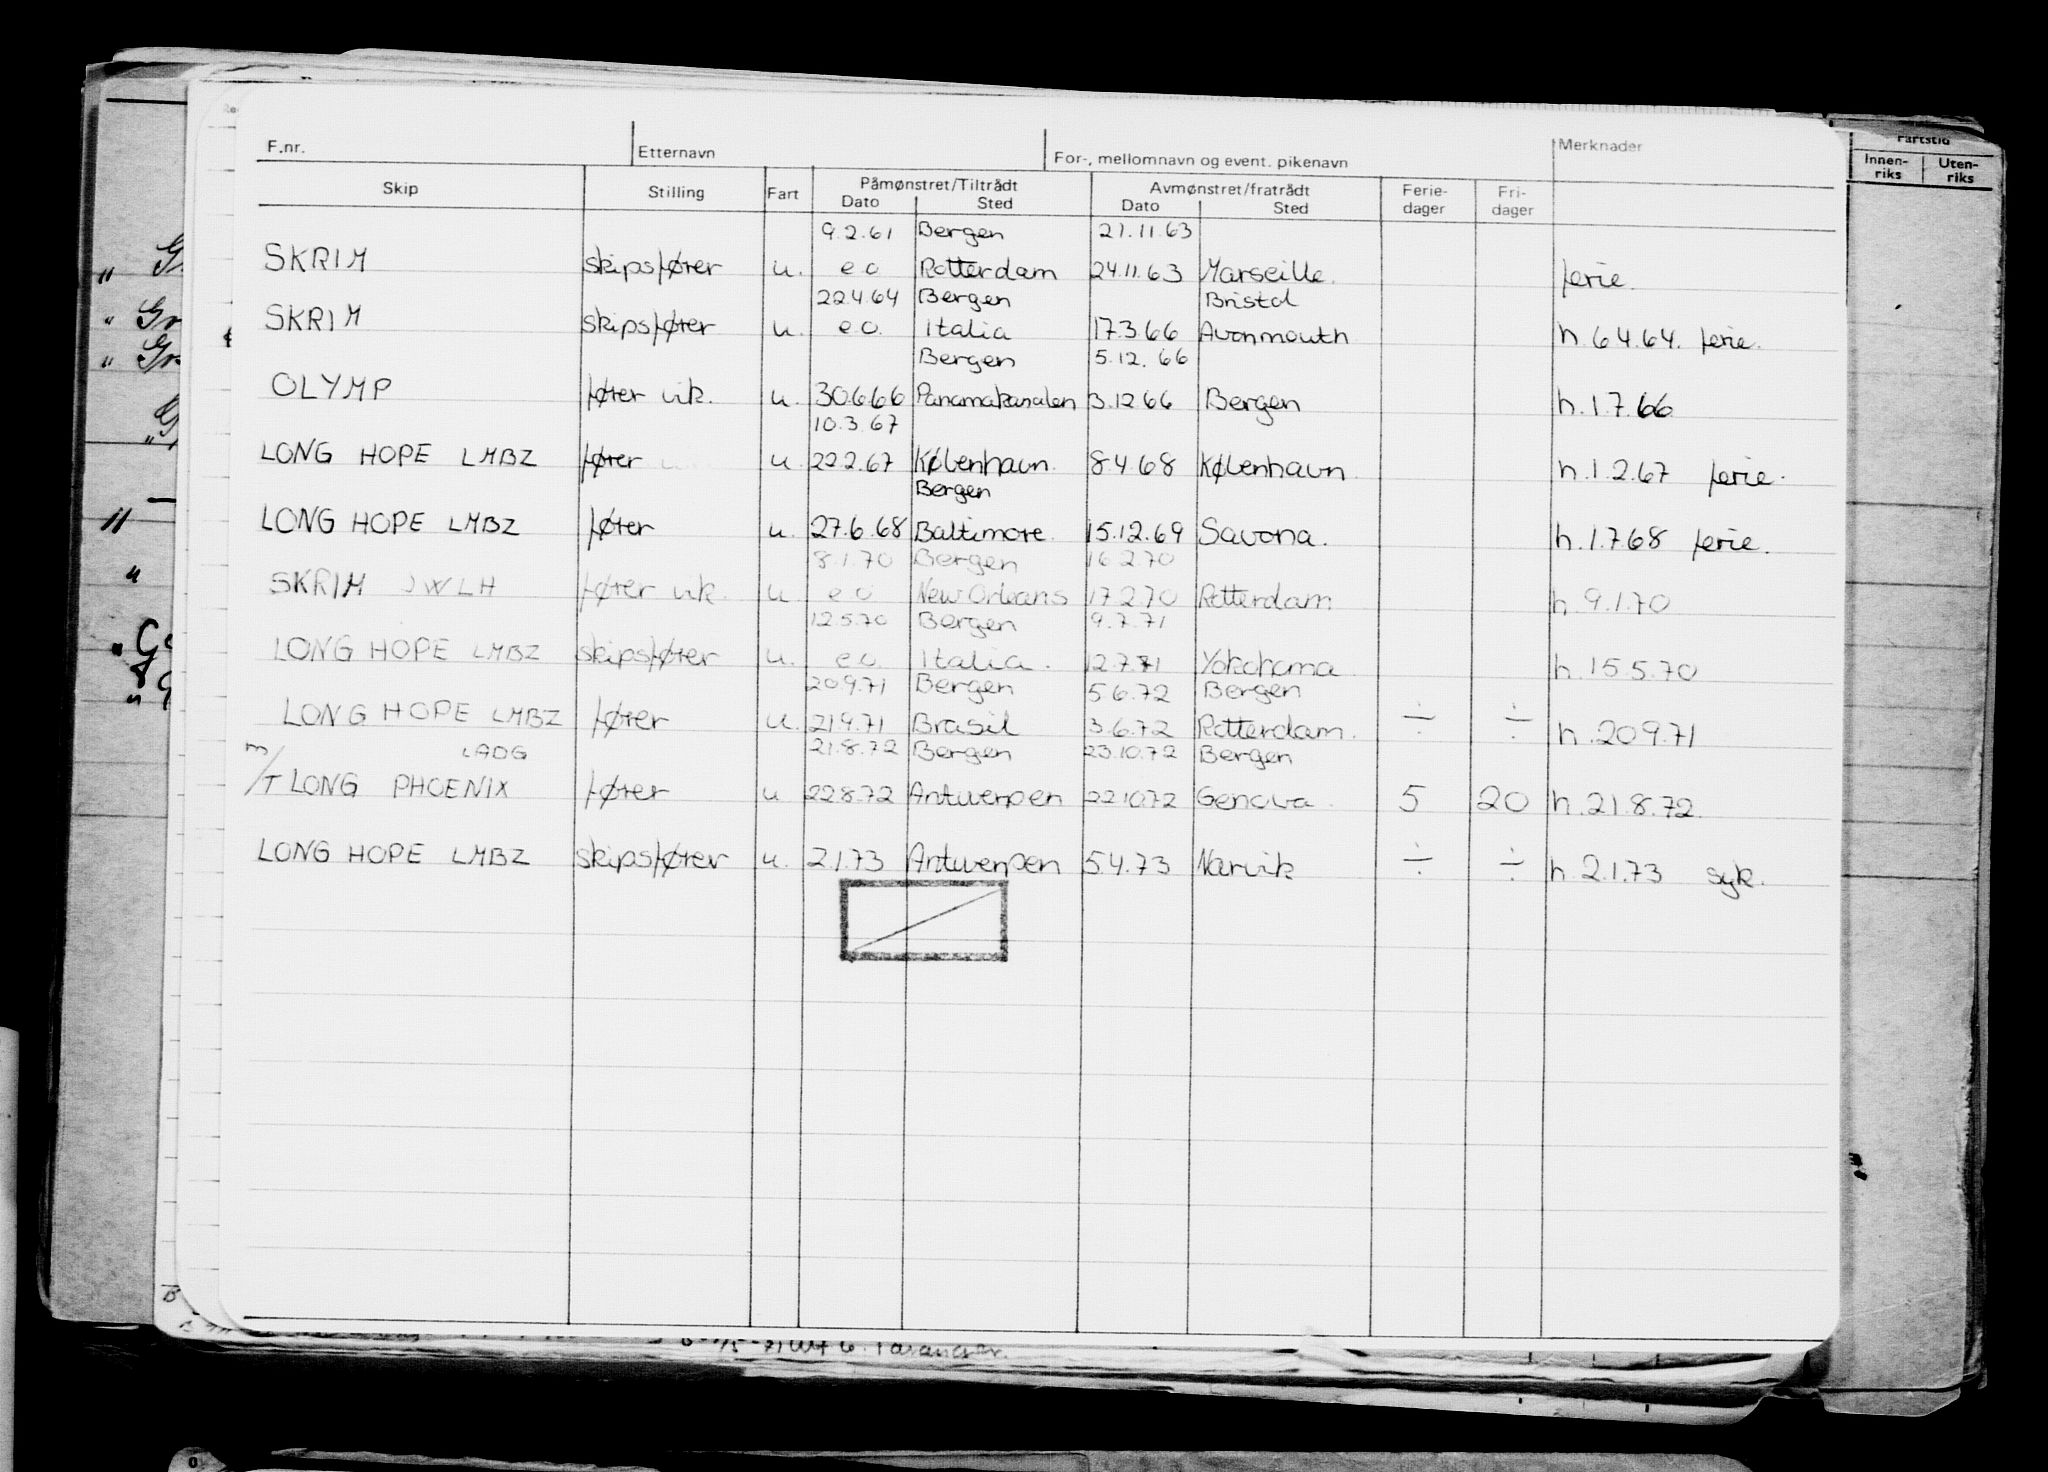 F.nr. Etternavn For-, mellomnavn og event. pikenavn Merknader
Skip Stilling Fart Påmønstret/Tiltrådt Avmønstret/fratrådt Ferie- Fri-
Dato Sted Dato Sted dager dager
9.2.61 Bergen 21.11.63
SKRIM skipsfører u. e o Rotterdam 24.11.63 Marseille. ferie.
22.4.64 Bergen Bristol
SKRIM skipsfører u. e o. Italia 17.3.66 Avonmouth h. 6.4.64. ferie.
Bergen 5.12.66
OLYMP fører vik. u. 30.6.66 Panamakanalen 3.12.66 Bergen h.1.7.66
10.3.67
LONG HOPE LMBZ fører u 22.2.67 København. 8.4.68 København. h.1.2.67 ferie.
Bergen
LONG HOPE LMBZ fører u. 27.6.68 Baltimore. 15.12.69 Savona. h.1.7.68 ferie.
8.1.70 Bergen 16.2.70
SKRIM JWLH fører vik. u e o New Orleans 17.2.70 Rotterdam h.9.1.70
12.5.70 Bergen 9.7.71
LONG HOPE LMBZ skipsfører u. e o. Italia. 12.7.71 Yokohama h.15.5.70
20.9.71 Bergen 5.6.72 Bergen
LONG HOPE LMBZ fører u. 21.9.71 Brasil 3.6.72 Rotterdam. ÷ ÷ h.20.9.71
LADG 21.8.72 Bergen 23.10.72 Bergen
m/T LONG PHOENIX fører u 22.8.72 Antwerpen 22.10.72 Genova. 5 20 h.21.8.72.
LONG HOPE LMBZ skipsfører u. 2.1.73 Antwerpen 5.4.73 Narvik ÷ ÷ h.2.1.73 syk.
Fartstid
Innen- Uten-
riks riks